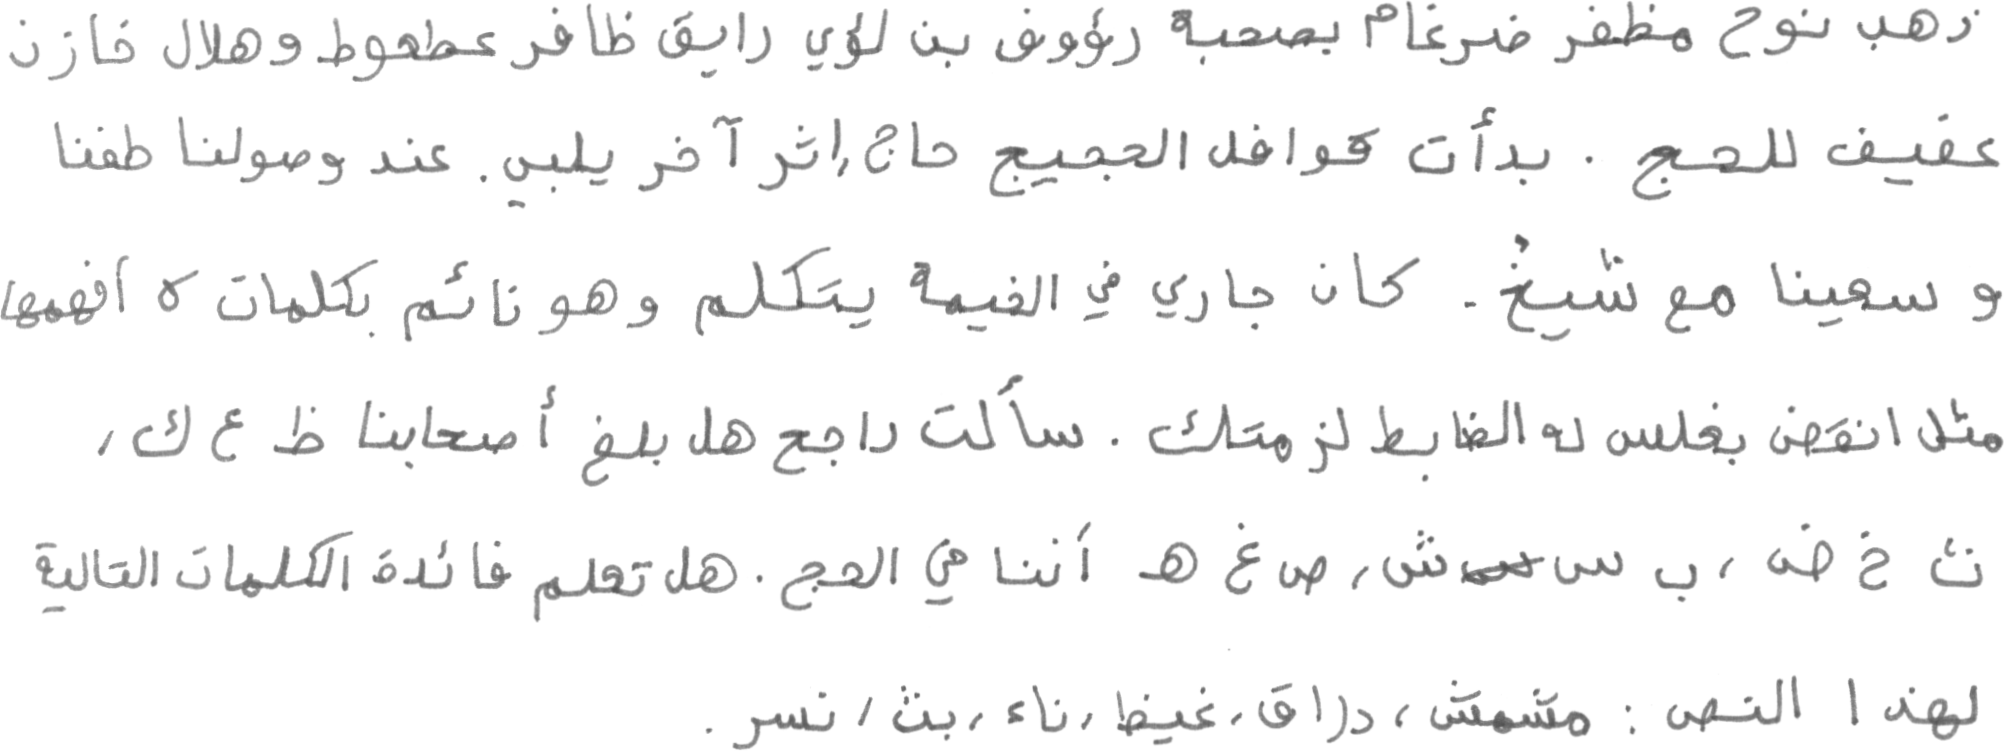 ذهب نوح مظفر ضرغام بصحبة رؤوف بن لؤي رايق ظافر عطعوط وهلال خازن
عفيف للحج . بدأت قوافل الحجيج حاج إثر آخر يلبي . عند وصولنا طفنا
و سعينا مع شيخ . كان جاري في الخيمة يتكلم وهو نائم بكلمات لا أفهمها
مثل انقض بغلس له الضابط لزمتك . سألت راجع هل بلغ أصحابنا ظ ع ك ،
ث خ ض ، ب س ش ، ص غ هـ أننا في الحج . هل تعلم فائدة الكلمات التالية
لهذا النص : مشمش ، دراق ، غيظ ، ناء ، بث ، نسر .